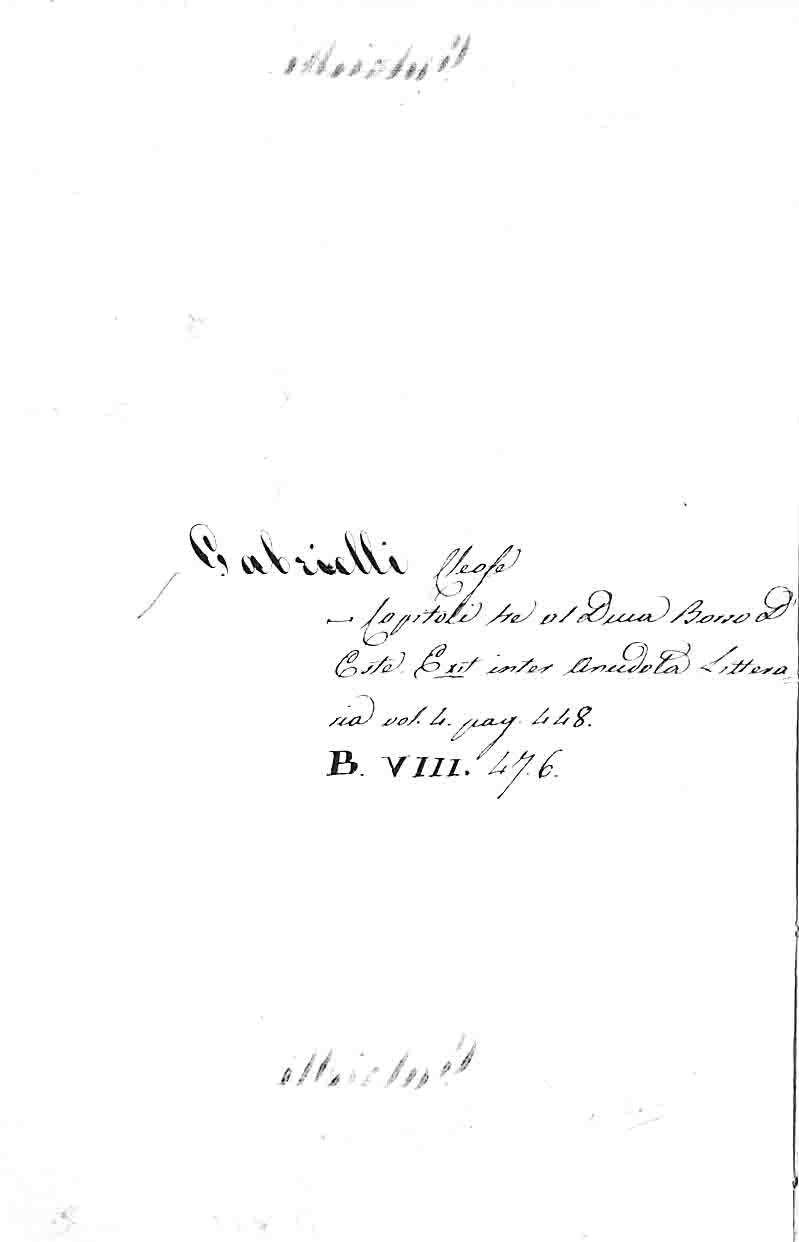 Gabrielli Cleofe
— Capitoli tre al Duca Borso D'
Este. Exit inter Anecdota Littera=
ria vol. 4. pag. 448.
B. VIII. 476.